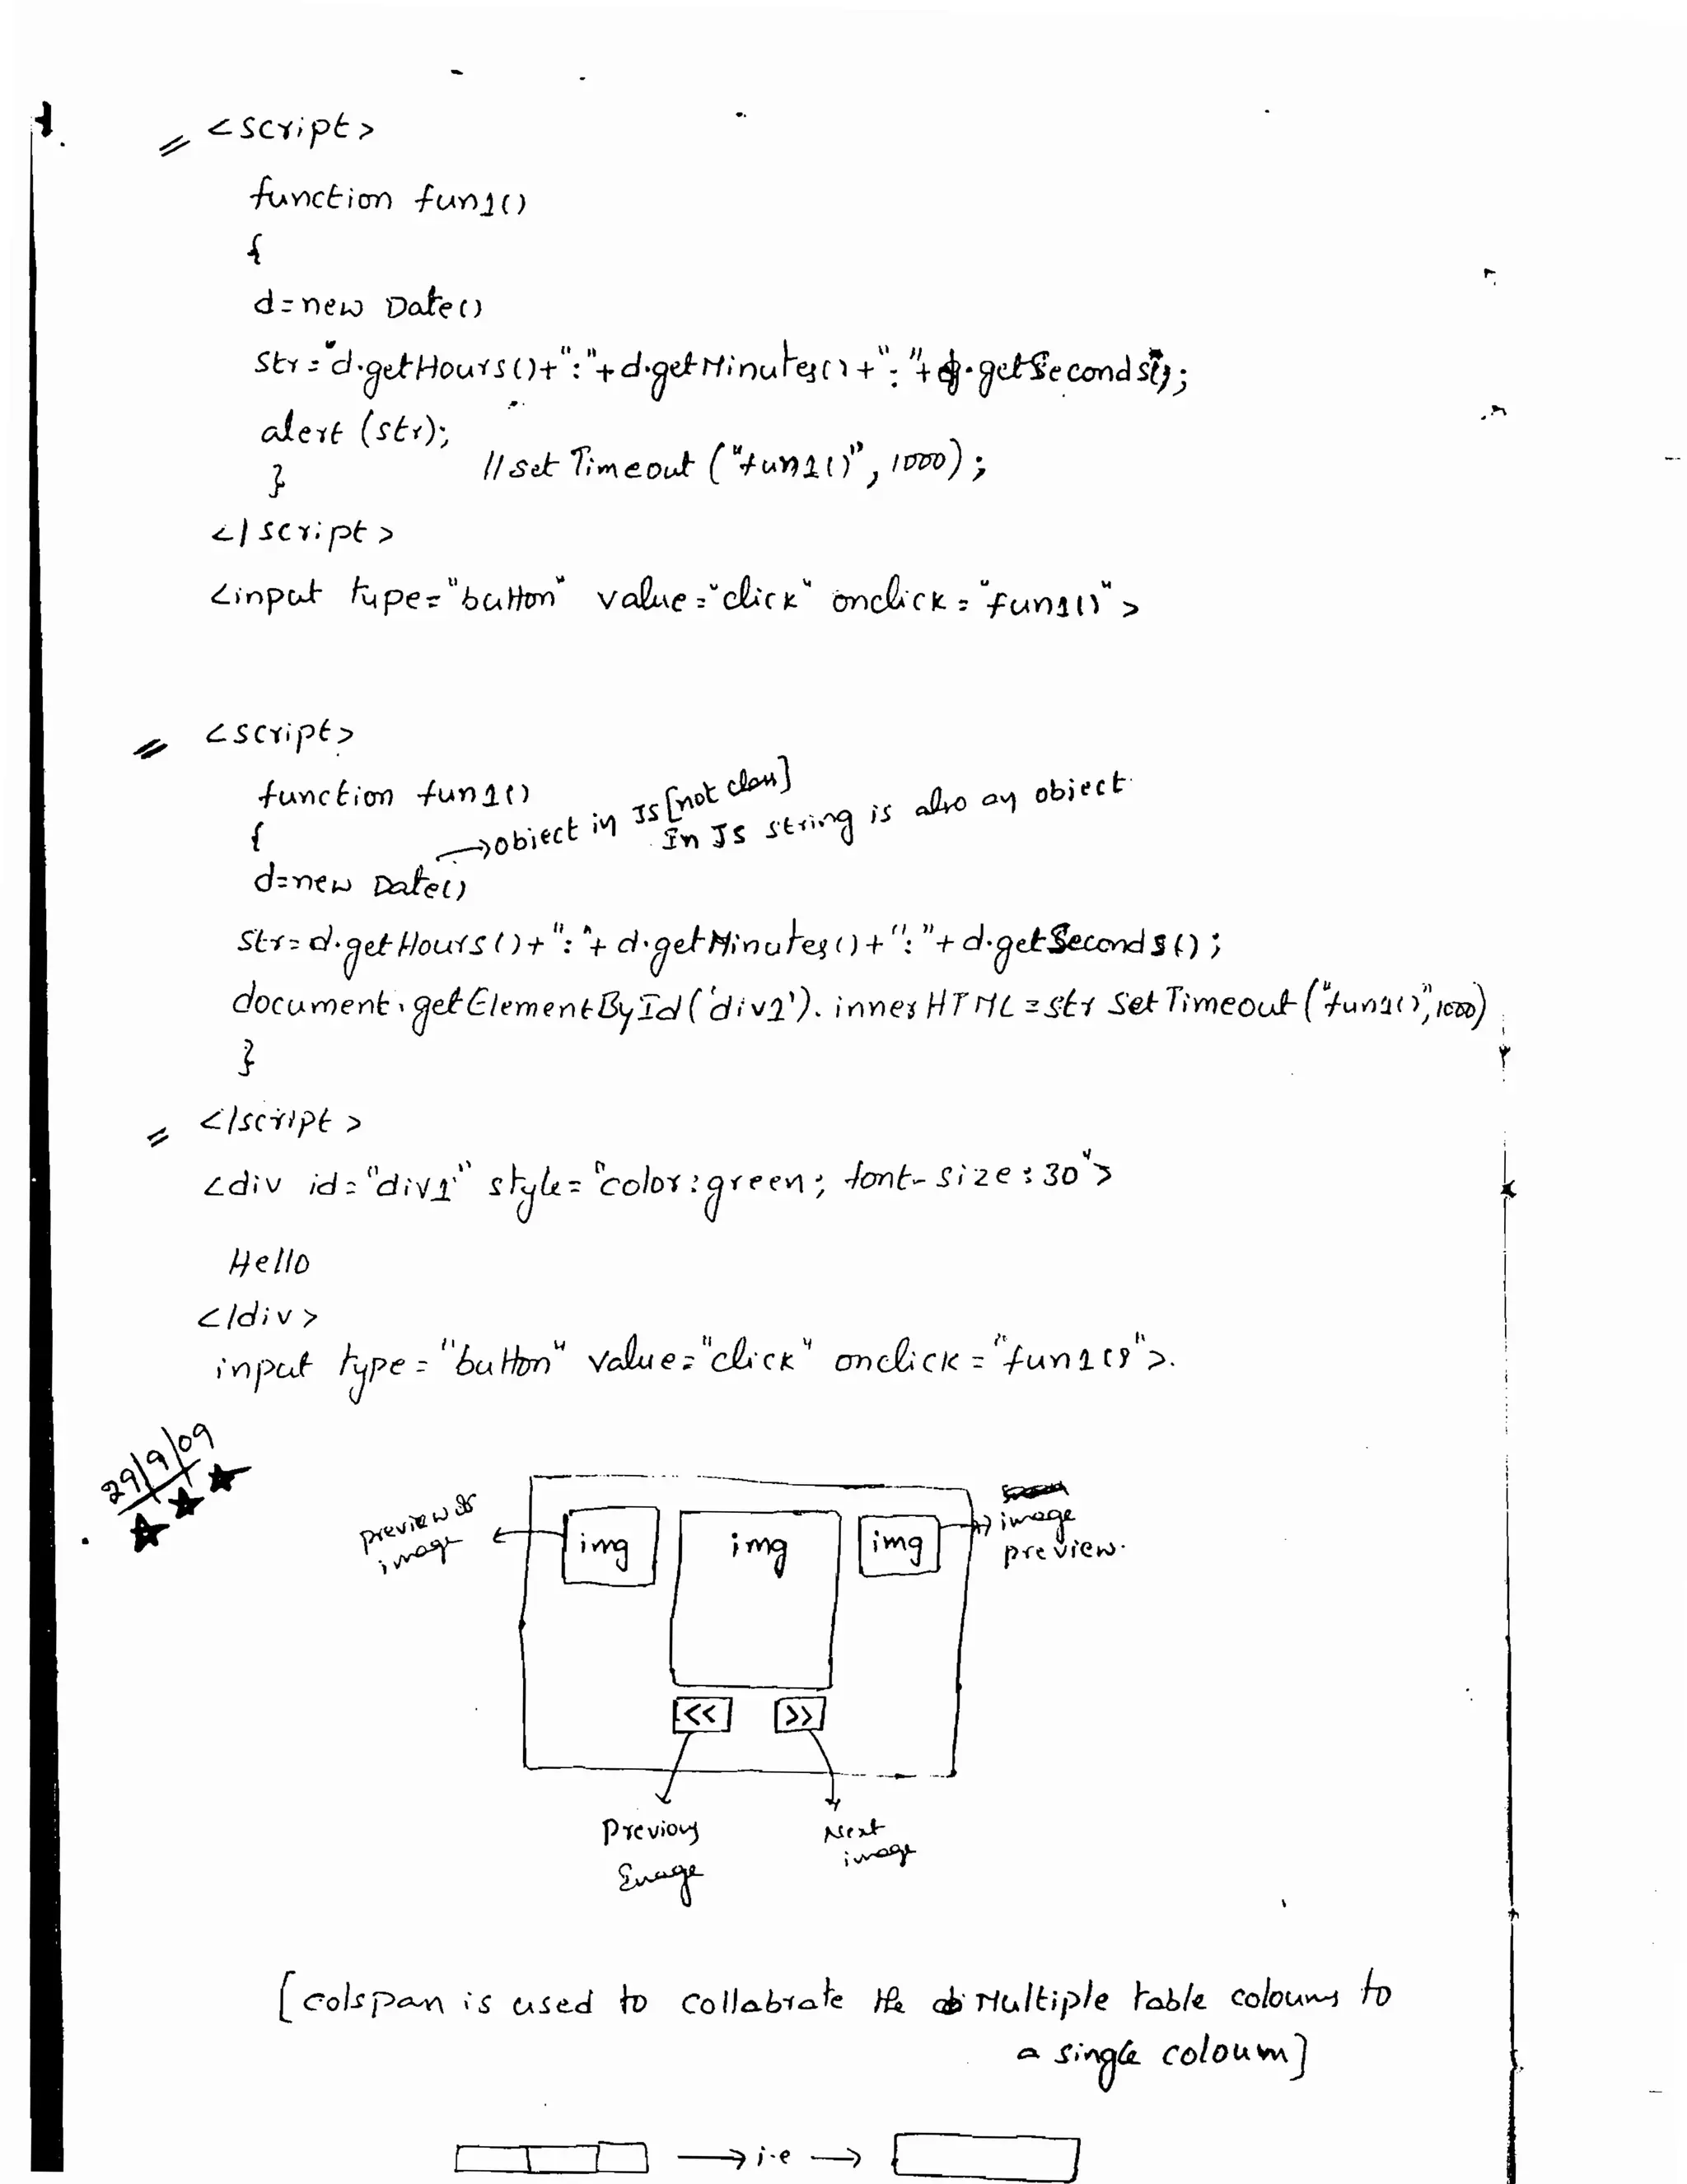 = <script>
function fun1()
{
d=new Date()
str="d.getHours()+":"+d.getMinutes()+":"+d.getSeconds();
alert (str);
} //set Timeout ("fun1()", 1000);
</script>
<input type="button" value="click" onclick="fun1()">
= <script>
function fun1()
{ →object in JS [not class] In JS string is also an object.
d=new Date()
str=d.getHours()+":"+d.getMinutes()+":"+d.getSeconds();
document.getElementById('div1').innerHTML=str Set Timeout ("fun1()",1000)
}
= </script>
<div id="div1" style="color:green; font-size:30">
Hello
</div>
input type="button" value="click" onclick="fun1()">.
29/9/09
preview
image
img
img
img
image
preview.
<<
>>
Previous
Image
Next
image
[colspan is used to collabrate the Multiple table coloums to
a single coloum]
→ i.e →